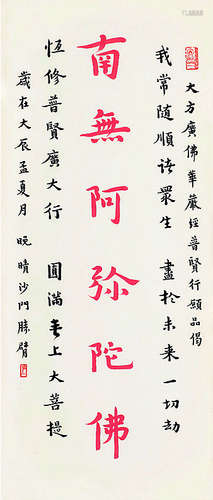 大方廣佛華嚴經普賢行願品偈
我常隨順諸眾生 盡於未來一切劫
南無阿彌陀佛
恆修普賢廣大行 圓滿无上大菩提
歲在大辰孟夏月 晚晴沙門勝臂